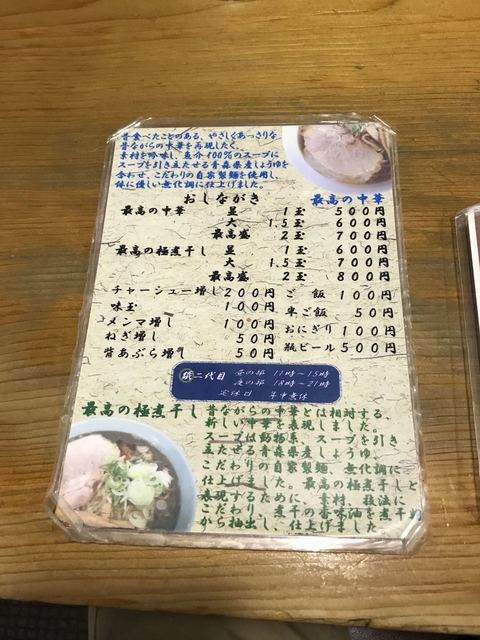 昔食べたことのある、やさしくあっさりな
昔ながらの中華を再現したく、
素材を吟味し、魚介100%のスープに
スープを引き立たせる青森県産しょうゆを
合わせ、こだわりの自家製麺を使用し、
体に優しい無化調に仕上げました。
おしながき 最高の中華
最高の中華 並 1玉 500円
大 1.5玉 600円
最高盛 2玉 700円
最高の極煮干し 並 1玉 600円
大 1.5玉 700円
最高盛 2玉 800円
チャーシュー増し 200円 ご飯 100円
味玉 100円 半ご飯 50円
メンマ増し 100円 おにぎり 100円
ねぎ増し 50円 瓶ビール 500円
背あぶら増し 50円
二代目 昼の部 11時~15時
夜の部 18時~21時
定休日 年中無休
最高の極煮干し 昔ながらの中華とは相対する、
新しい中華を表現しました。
スープは動物系、スープを引き
立たせる青森県産しょうゆ、
こだわりの自家製麺、無化調に
仕上げました。最高の極煮干しと
表現するために、素材、技法に
こだわり、煮干の香味油を煮干
から抽出し、仕上げました